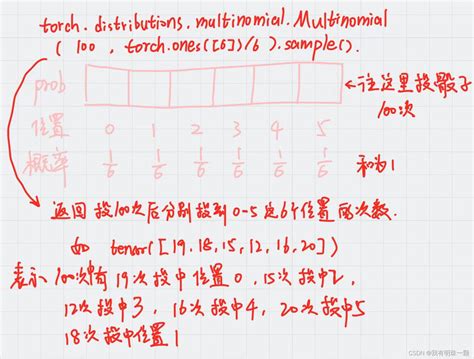 torch.distributions.multinomial.Multinomial
(100, torch.ones([6])/6).sample().
prob
←往这里投骰子
100次
位置 0 1 2 3 4 5
概率 1/6 1/6 1/6 1/6 1/6 1/6 和为1
返回投100次后分别投到0-5这6个位置的次数.
如 tensor([19,18,15,12,16,20])
表示100次中有19次投中位置0,15次投中2,
12次投中3,16次投中4,20次投中5
18次投中位置1